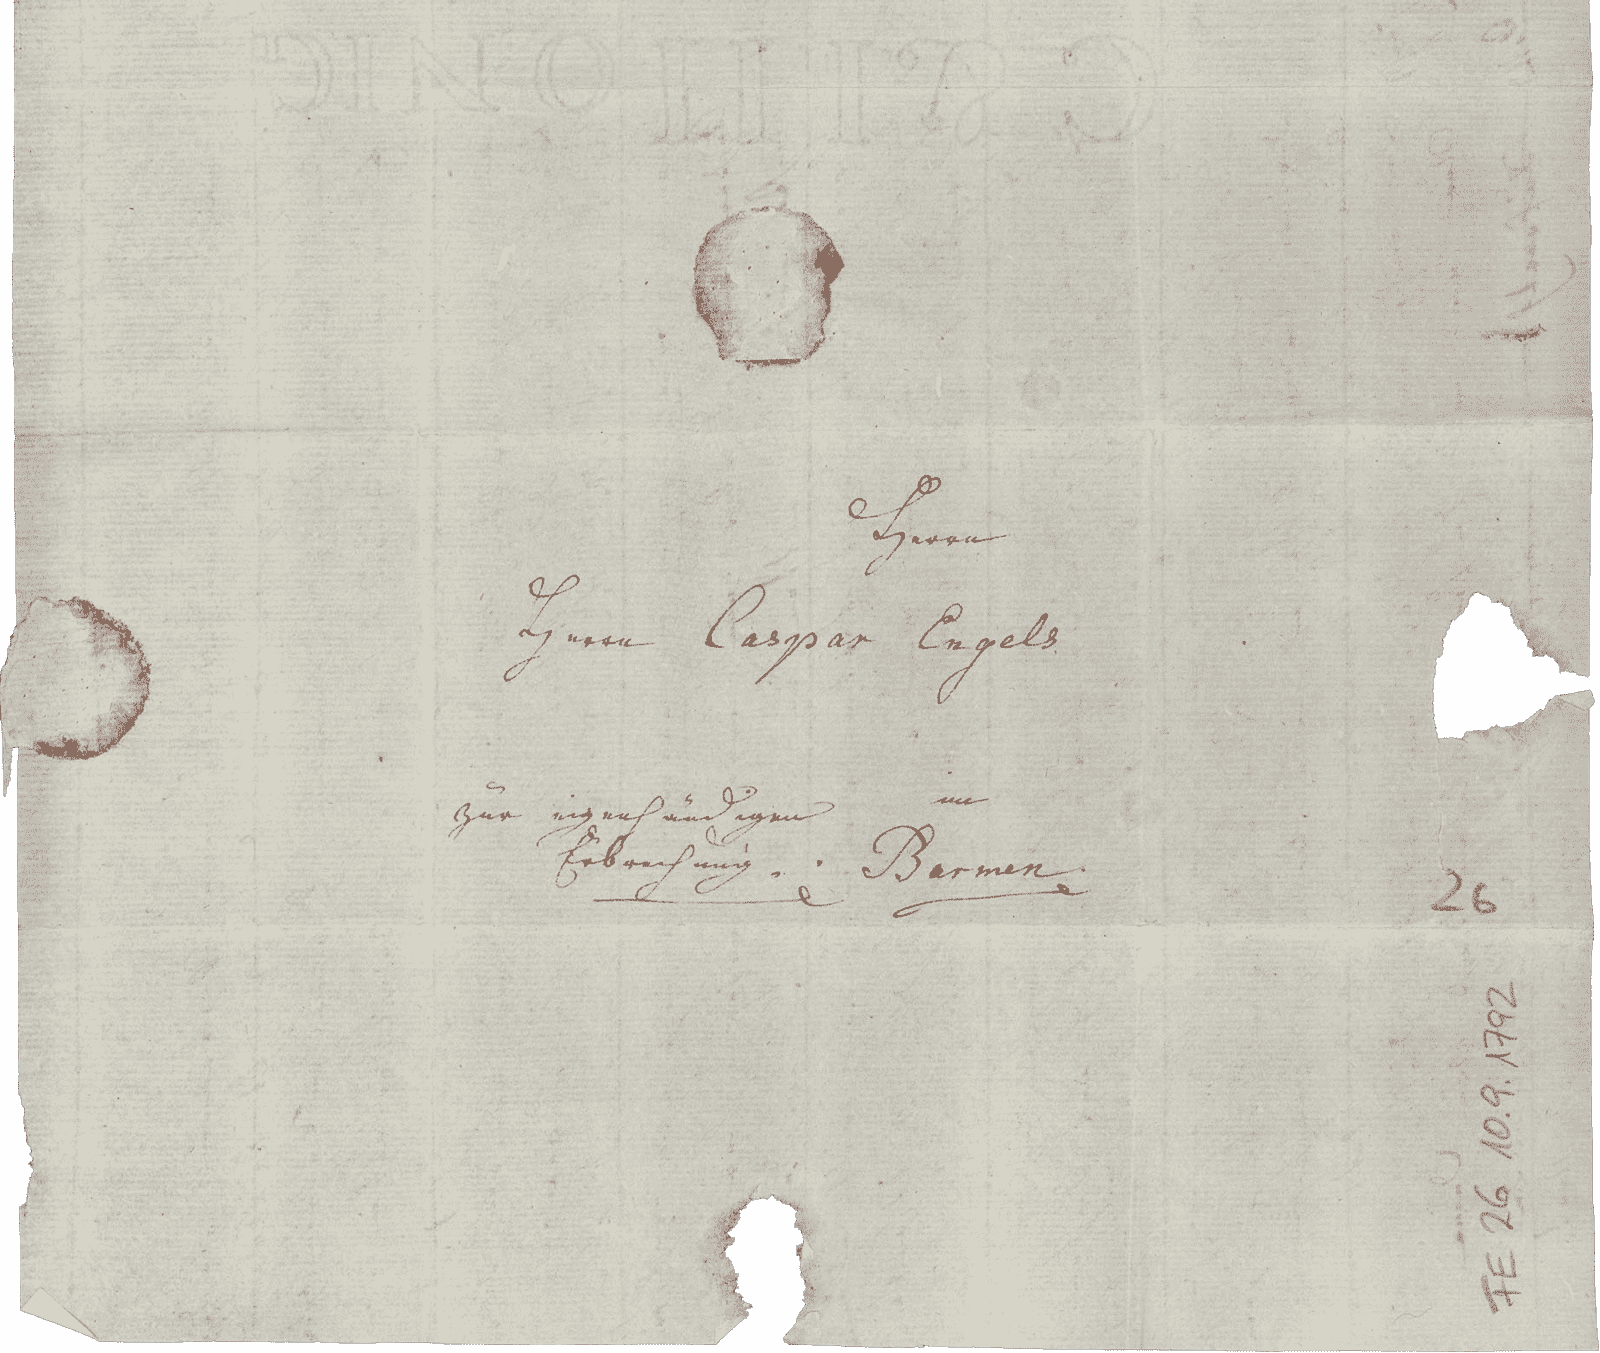 Herrn
Herrn Caspar Engels
zur eigenhändigen
Erbrechung.
im
Barmen.
26
FE 26 10.9.1792